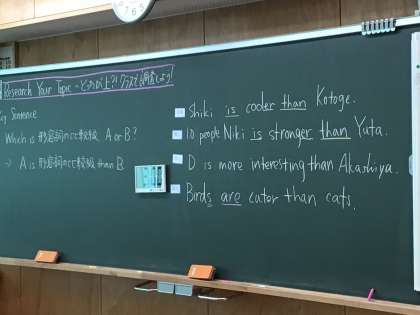 Research Your Topic ~どっちが上?! クラスで調査しよう!
Key Sentence
Which is 形容詞の比較級 A or B?
⇒ A is 形容詞の比較級 than B.
Shiki is cooler than Kotoge.
10 people Niki is stronger than Yuta.
D is more interesting than Akashiya.
Birds are cuter than cats.